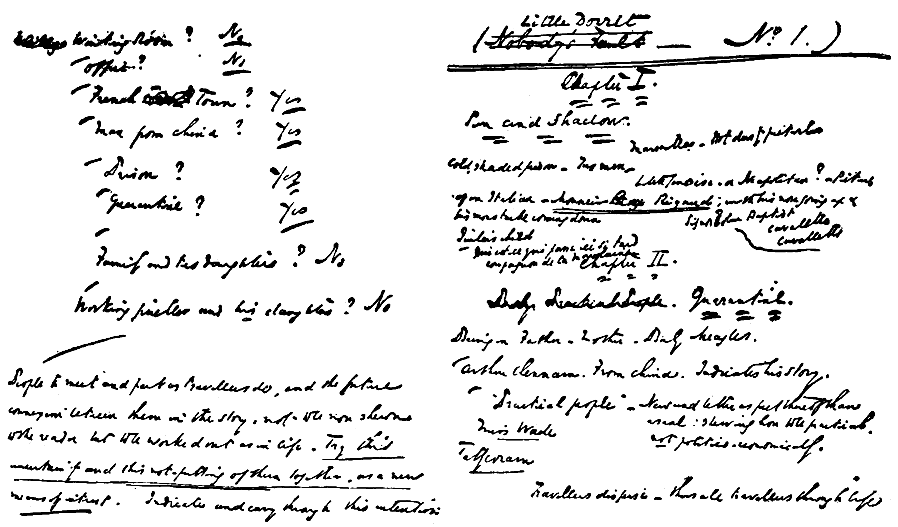 Waiting Room? No
Office? No
French Town? Yes
Man from China? Yes
Prison? Yes
Quarantine? Yes
Family and two daughters? No
Working jeweller and his daughter? No
People to meet and part as travellers do, and the future
connexion between them in the story, not to be now shewn
to the reader but to be worked out as in life. Try this
uncertainty and this not-putting of them together, as a new
means of interest. Indicate and carry through this intention
Little Dorrit
(Nobody's Fault — No. 1.)
Chapter I.
Sun and Shadow.
Marseilles. Hot dusty
Cold, shaded prison. Two men
a Neapolitan?
an Italian. Monsieur Rigaud; with his nose going up &
his moustache coming down
Baptist
Cavalletto
Cavalletto
Jailer's child
compagnon de la Marjolaine
Chapter II.
Practical People. Quarantine.
Father. Mother. Meagles.
Arthur Clennam. From China. Indicates his story.
"Practical people". New and better aspect than
usual: shewing how the practical.
not politico-economically.
Miss Wade
Tattycoram
Travellers disperse. thus all travellers through Life